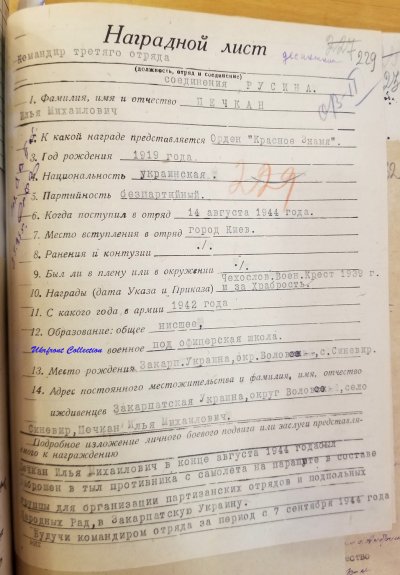 Наградной лист
229
Командир третяго отряда
(должность, отряд и соединение)
соединения РУСИНА.
1. Фамилия, имя и отчество ПЕЧКАН
Илья Михайлович
2. К какой награде представляется Орден "Красное Знамя".
3. Год рождения 1919 года.
4. Национальность украинская
229
5. Партийность безпартийный.
6. Когда поступил в отряд 14 августа 1944 года.
7. Место вступления в отряд город Киев.
8. Ранения и контузии ./.
9. Был ли в плену или в окружении ./.
Чехослов.Воен.Крест 1939 г.
10. Награды (дата Указа и Приказа) и за Храбрость.
11. С какого года в армии 1942 года
12. Образование: общее нисшее,
Ukrfront Collection военное под офицерская школа.
13. Место рождения Закарп.Украина,окр.Волове, с.Синевир.
14. Адрес постоянного местожительства и фамилия, имя, отчество
иждивенцев Закарпатская Украина, округ Волове, село
Синевир, Печкан Илья Михайлович.
Подробное изложение личного боевого подвига или заслуги представляе-
мого к награждению
Печкан Илья Михайлович в конце августа 1944 годабыл
выброшен в тыл противника с самолета на парашуте в составе
группы для организации партизанских отрядов и подпольных
Народных Рад, в Закарпатскую Украину.
Будучи командиром отряда за период с 7 сентября 1944 года